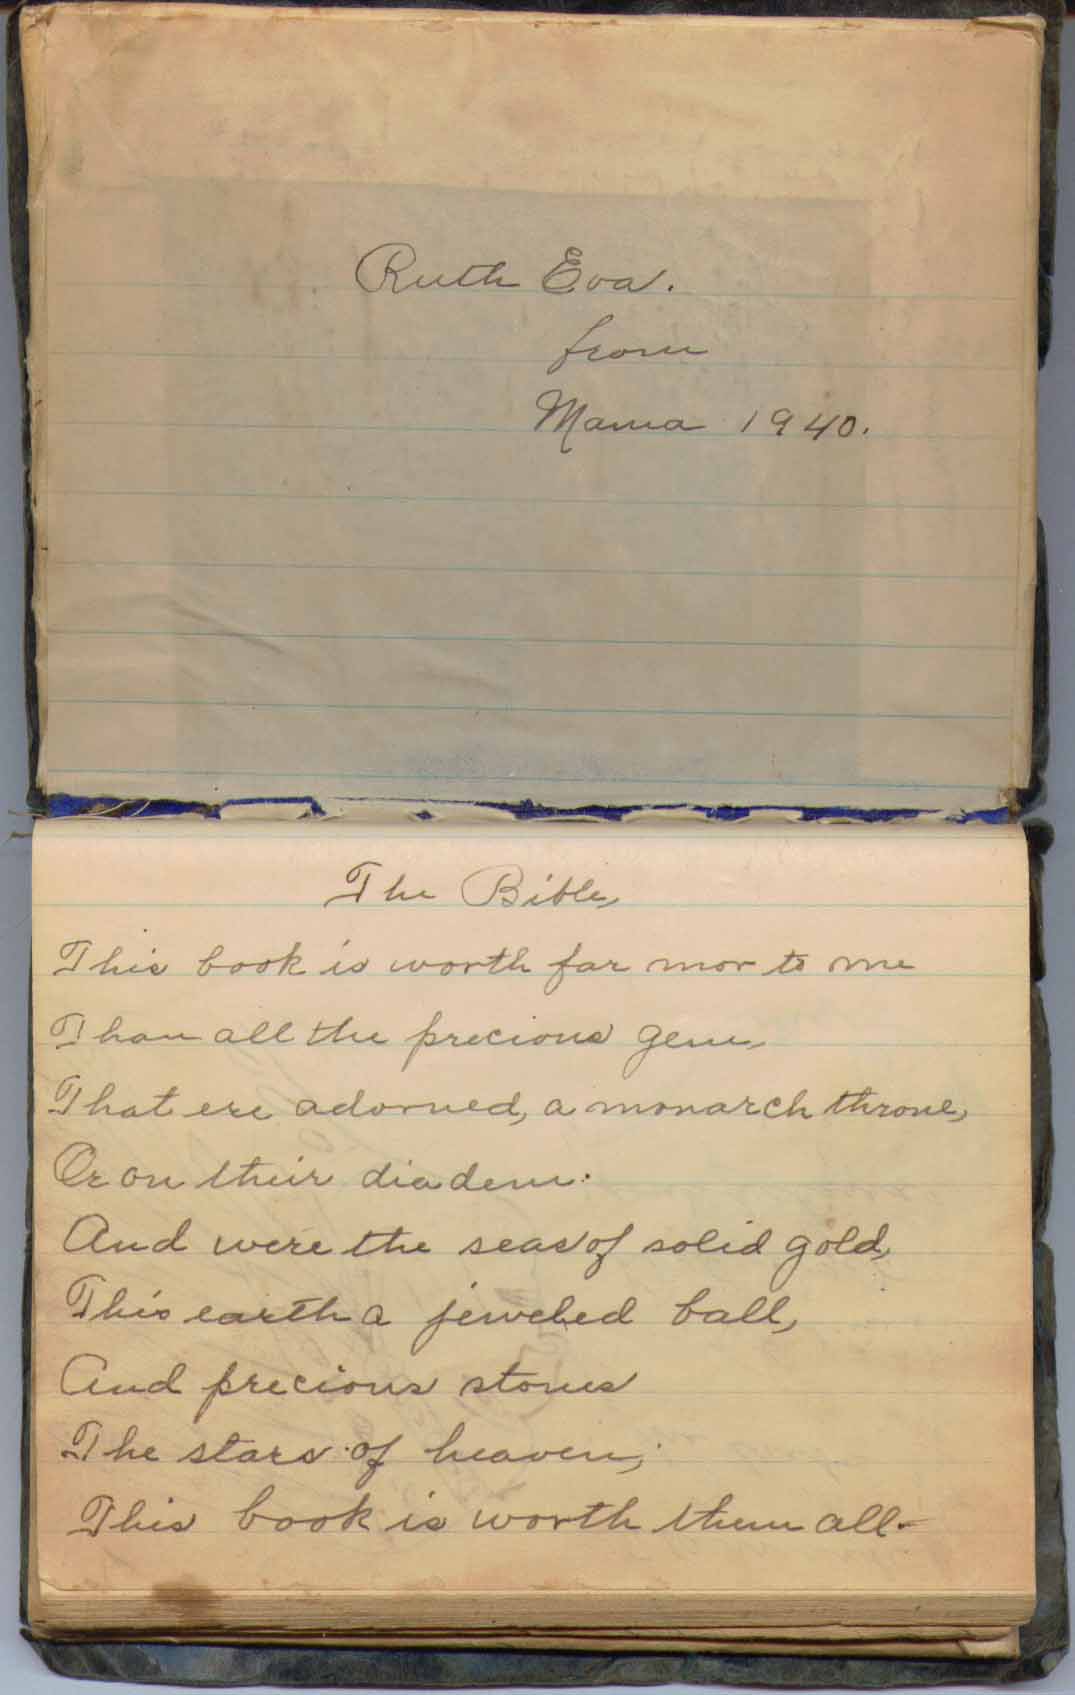 Ruth Eva.
from
Mama 1940.
The Bible,
This book is worth far mor to me
Than all the precious gem,
That ere adorned, a monarch throne,
Or on their diadem.
And were the seas of solid gold,
This earth a jeweled ball,
And precious stones
The stars of heaven;
This book is worth them all-